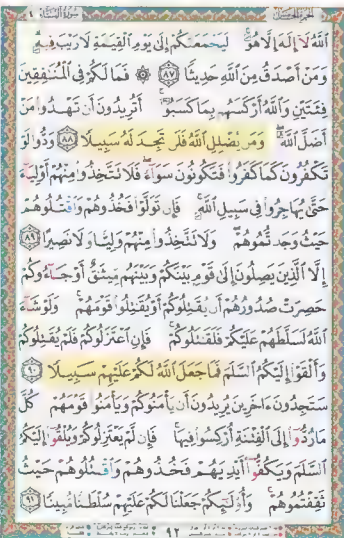 سورة النساء
الجزء الخامس
ٱللَّهُ لَآ إِلَٰهَ إِلَّا هُوَ ۚ لَيَجْمَعَنَّكُمْ إِلَىٰ يَوْمِ ٱلْقِيَٰمَةِ لَا رَيْبَ فِيهِ ۗ
وَمَنْ أَصْدَقُ مِنَ ٱللَّهِ حَدِيثًا ٨٧ ۞ فَمَا لَكُمْ فِى ٱلْمُنَٰفِقِينَ
فِئَتَيْنِ وَٱللَّهُ أَرْكَسَهُم بِمَا كَسَبُوٓا۟ ۚ أَتُرِيدُونَ أَن تَهْدُوا۟ مَنْ
أَضَلَّ ٱللَّهُ ۖ وَمَن يُضْلِلِ ٱللَّهُ فَلَن تَجِدَ لَهُۥ سَبِيلًا ٨٨ وَدُّوا۟ لَوْ
تَكْفُرُونَ كَمَا كَفَرُوا۟ فَتَكُونُونَ سَوَآءً ۖ فَلَا تَتَّخِذُوا۟ مِنْهُمْ أَوْلِيَآءَ
حَتَّىٰ يُهَاجِرُوا۟ فِى سَبِيلِ ٱللَّهِ ۚ فَإِن تَوَلَّوْا۟ فَخُذُوهُمْ وَٱقْتُلُوهُمْ
حَيْثُ وَجَدتُّمُوهُمْ ۖ وَلَا تَتَّخِذُوا۟ مِنْهُمْ وَلِيًّا وَلَا نَصِيرًا ٨٩
إِلَّا ٱلَّذِينَ يَصِلُونَ إِلَىٰ قَوْمٍۭ بَيْنَكُمْ وَبَيْنَهُم مِّيثَٰقٌ أَوْ جَآءُوكُمْ
حَصِرَتْ صُدُورُهُمْ أَن يُقَٰتِلُوكُمْ أَوْ يُقَٰتِلُوا۟ قَوْمَهُمْ ۚ وَلَوْ شَآءَ
ٱللَّهُ لَسَلَّطَهُمْ عَلَيْكُمْ فَلَقَٰتَلُوكُمْ ۚ فَإِنِ ٱعْتَزَلُوكُمْ فَلَمْ يُقَٰتِلُوكُمْ
وَأَلْقَوْا۟ إِلَيْكُمُ ٱلسَّلَمَ فَمَا جَعَلَ ٱللَّهُ لَكُمْ عَلَيْهِمْ سَبِيلًا ٩٠
سَتَجِدُونَ ءَاخَرِينَ يُرِيدُونَ أَن يَأْمَنُوكُمْ وَيَأْمَنُوا۟ قَوْمَهُمْ كُلَّ
مَا رُدُّوٓا۟ إِلَى ٱلْفِتْنَةِ أُرْكِسُوا۟ فِيهَا ۚ فَإِن لَّمْ يَعْتَزِلُوكُمْ وَيُلْقُوٓا۟ إِلَيْكُمُ
ٱلسَّلَمَ وَيَكُفُّوٓا۟ أَيْدِيَهُمْ فَخُذُوهُمْ وَٱقْتُلُوهُمْ حَيْثُ
ثَقِفْتُمُوهُمْ ۚ وَأُو۟لَٰٓئِكُمْ جَعَلْنَا لَكُمْ عَلَيْهِمْ سُلْطَٰنًا مُّبِينًا ٩١
٩٢